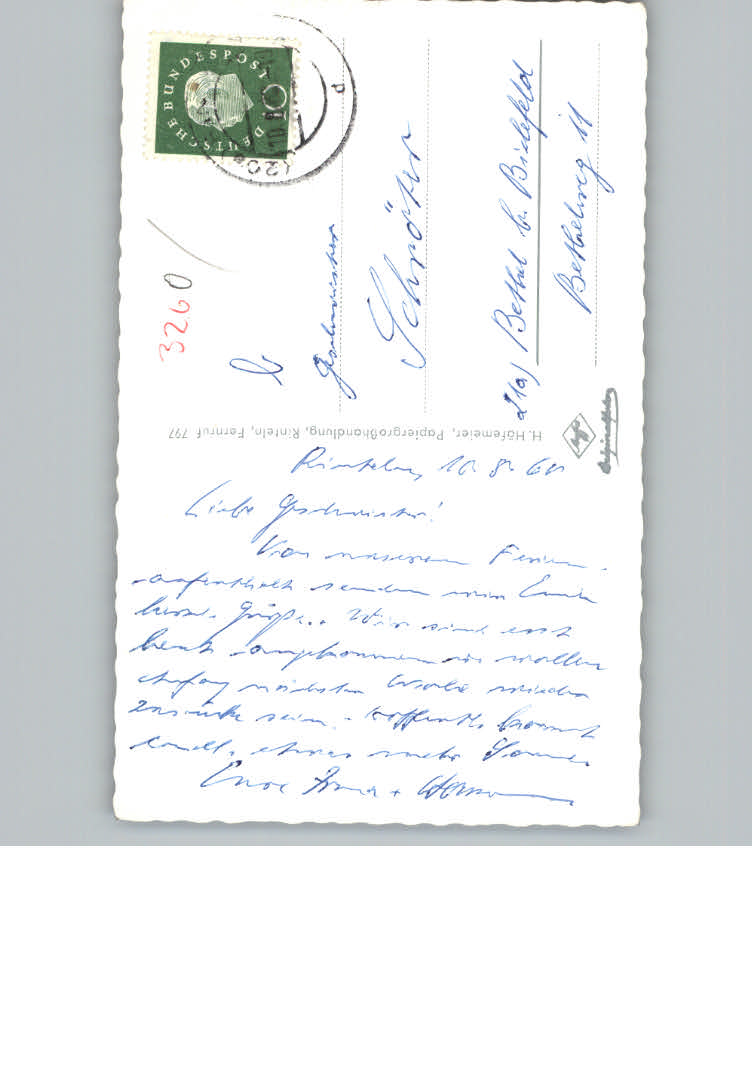 DEUTSCHE BUNDESPOST
10
3260
Geschwister
Schröter
21a) Bethel b. Bielefeld
Bethelweg 11
H. Höfemeier, Papiergroßhandlung, Rinteln, Fernruf 797
Agfa
Rinteln, 10. 8. 60
Liebe Geschwister!
Von unserem Ferien-
aufenthalt senden wir Euch
herzl. Grüße. Wir sind erst
heute angekommen u. wollen
Anfang nächster Woche wieder
zurück sein. Hoffentl. kommt
endl. etwas mehr Sonne.
Eure Irma + Werner